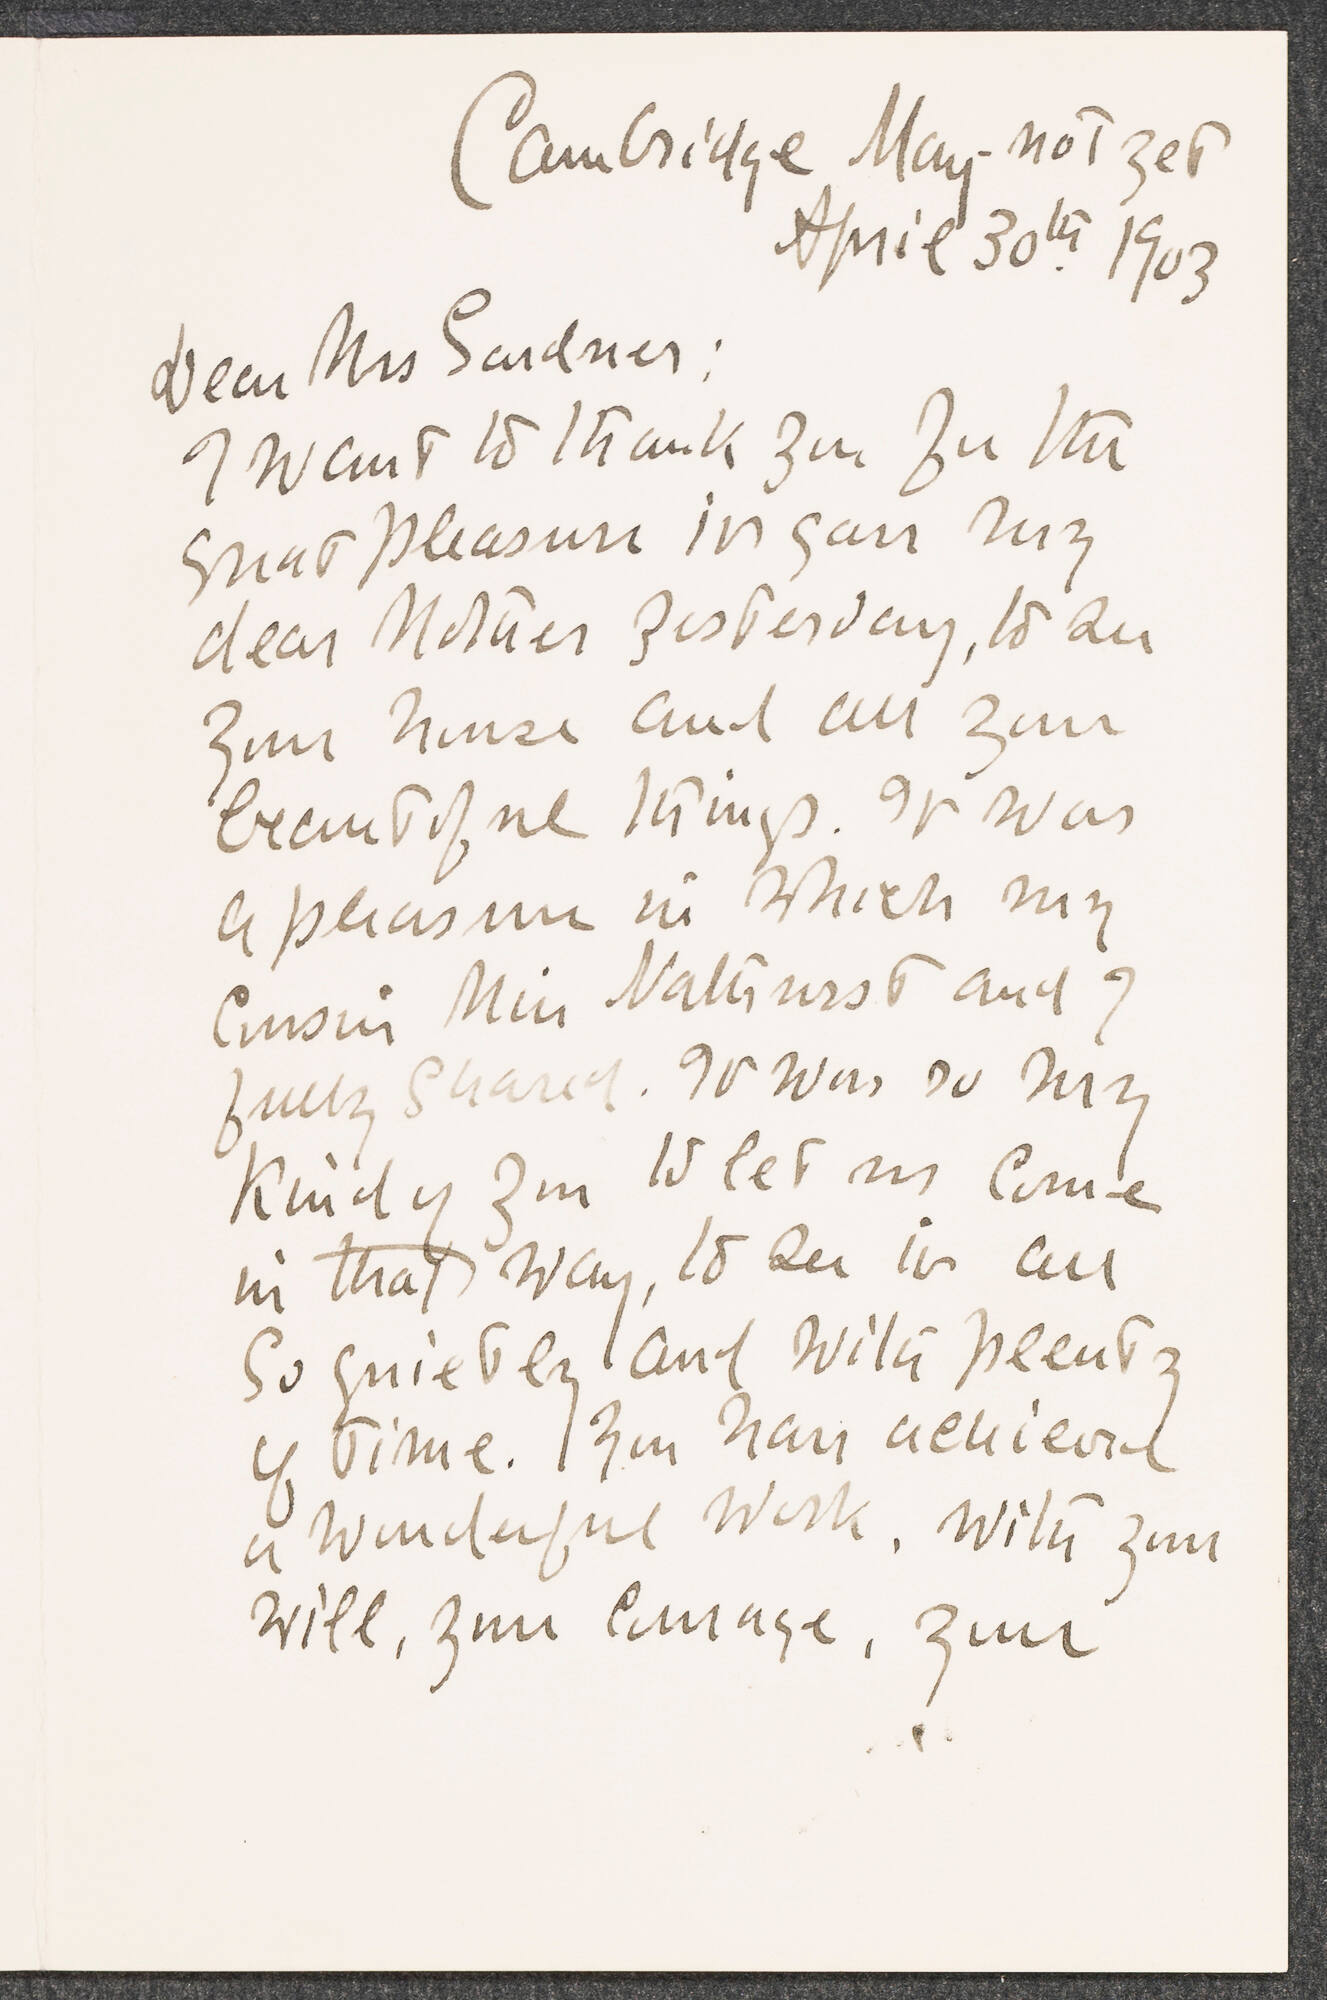 Cambridge May - not yet
April 30th 1903
Dear Mrs Gardner;
I want to thank you for the
great pleasure it gave my
dear Mother yesterday, to see
your house and all your
beautiful things. It was
a pleasure in which my
Cousin Miss Nathurst and I
fully shared. It was so very
Kind of you to let us come
in that way, to see it all
So quietly and with plenty
of time. You have achieved
a wonderful work. With your
will, your courage, your